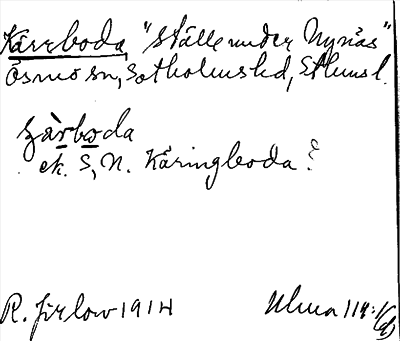 Kärrboda, "ställe under Nynäs"
Ösmo sn, Sotholms hd, Sthms l.
çàrboda
ek. S, N. Käringboda?
R. Jirlow 1914 Ulma 111:1(d)